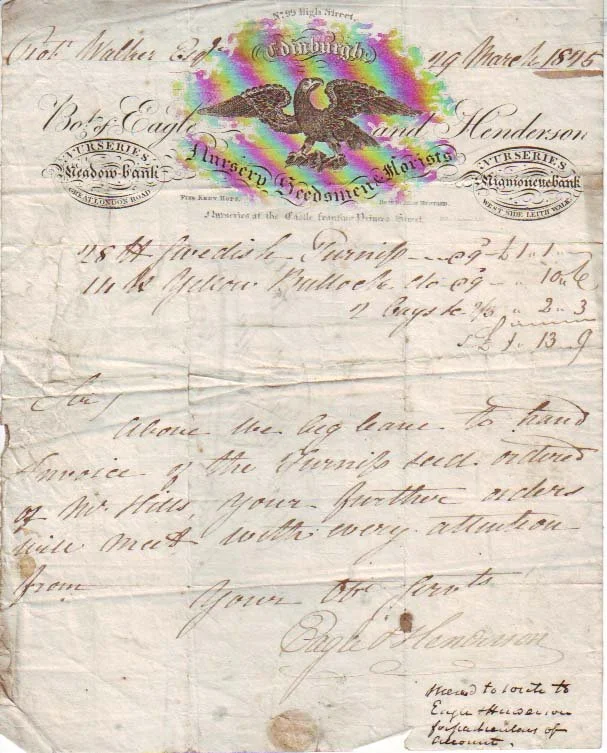 No. 99 High Street,
Edinburgh
Robt. Walker Esqr. 29 March 1845
Bot. of Eagle and Henderson
Nursery Seedsmen & Florists
NURSERIES
Meadow-bank
GREAT LONDON ROAD
NURSERIES
WEST SIDE LEITH WALK
Nurseries at the Castle fronting Princes Street
28 lb Swedish Turnip 9d £ 1 " 1 "
14 lb Yellow Bullock do 9d " 10 " 6
2 Bags &c " 2 " 3
£ 1 " 13 " 9
Sir,
Above we beg leave to hand
Invoice of the Turnip seed ordered
of Mr. Hills, your further orders
will meet with every attention
from
Your Obt. Servts
Eagle & Henderson
to write to
Eagle & Henderson
for particulars of
account.